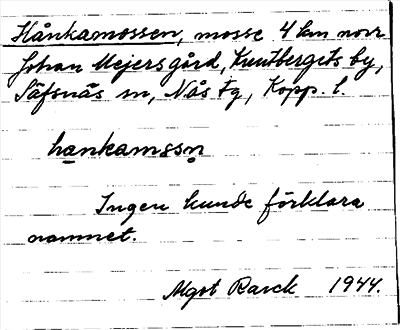 Hånkamossen, mosse 4 km norr
Johan Mejers gård, Knutbergets by,
Säfsnäs sn, Nås tg, Kopp. l.
hankamssn
Ingen kunde förklara
namnet.
Algot Rarck 1944.